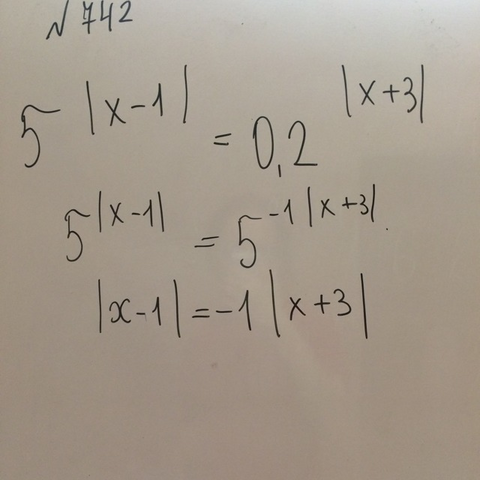 N 742
5^|x-1| = 0,2^|x+3|
5^|x-1| = 5^-1|x+3|.
|x-1| = -1|x+3|